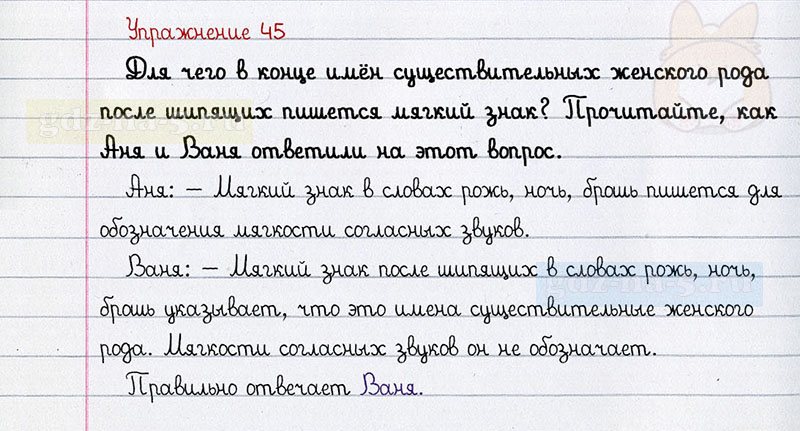 Упражнение 45
Для чего в конце имён существительных женского рода
после шипящих пишется мягкий знак? Прочитайте, как
Аня и Ваня ответили на этот вопрос.
Аня: – Мягкий знак в словах рожь, ночь, брошь пишется для
обозначения мягкости согласных звуков.
Ваня: – Мягкий знак после шипящих в словах рожь, ночь,
брошь указывает, что это имена существительные женского
рода. Мягкости согласных звуков он не обозначает.
Правильно отвечает Ваня.